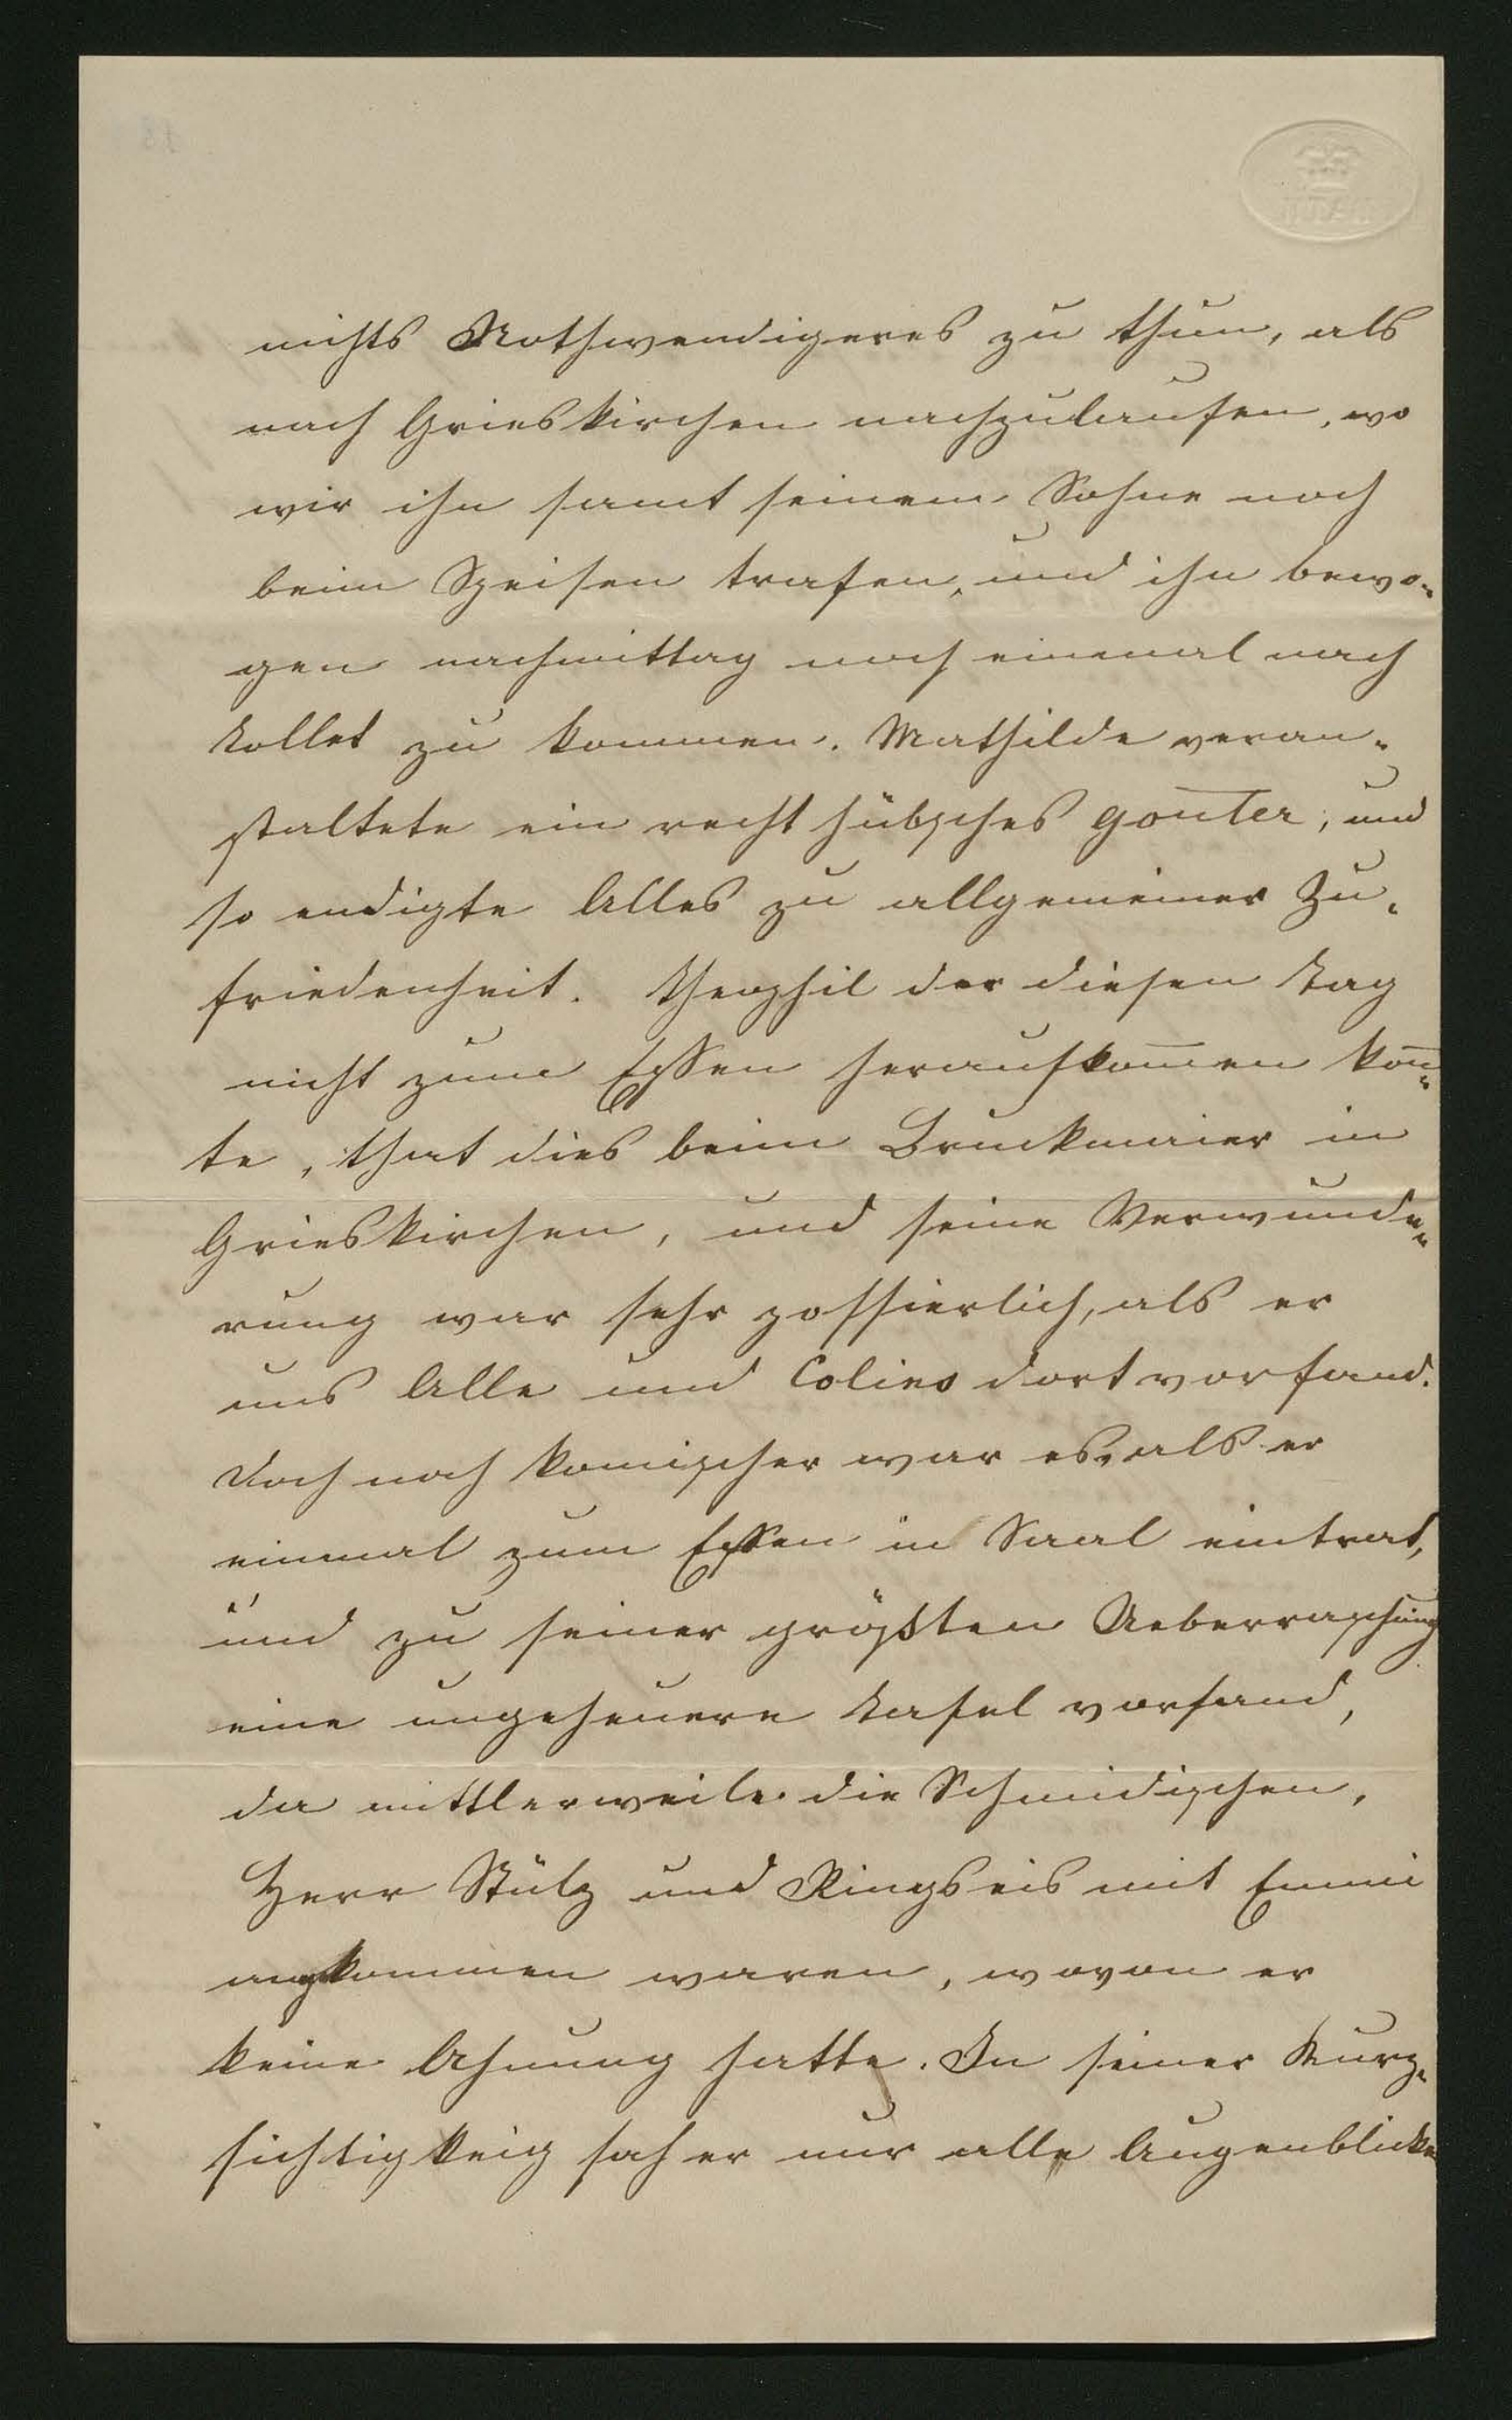 nichts Nothwendigeres zu thun, als
nach Grieskirchen nachzulaufen, wo
wir ihn samt seinem Sohne noch
beim Speisen trafen, und ihn bewo-
gen nachmittag noch einmal nach
Tollet zu kommen. Mathilde veran-
staltete ein recht hübsches gouter, und
so endigte Alles zu allgemeiner Zu-
friedenheit. Theophil der diesen Tag
nicht zum Essen heraufkom̄en kon̄-
te, that dies beim Bruckmaier in
Grieskirchen, und seine Verwunde-
rung war sehr possierlich, als er
uns Alle und Colins dort vorfand.
Doch noch komischer war es, als er
einmal zum Essen in Saal eintrat,
und zu seiner größten Ueberraschung
eine ungeheuere Tafel vorfand,
da mittlerweile die Schmidischen,
Herr Stülz und Ringseis mit Emmi
angekommen waren, wovon er
keine Ahnung hatte. In seiner Kurz-
sichtigkeig sah er nur alle Augenblicke